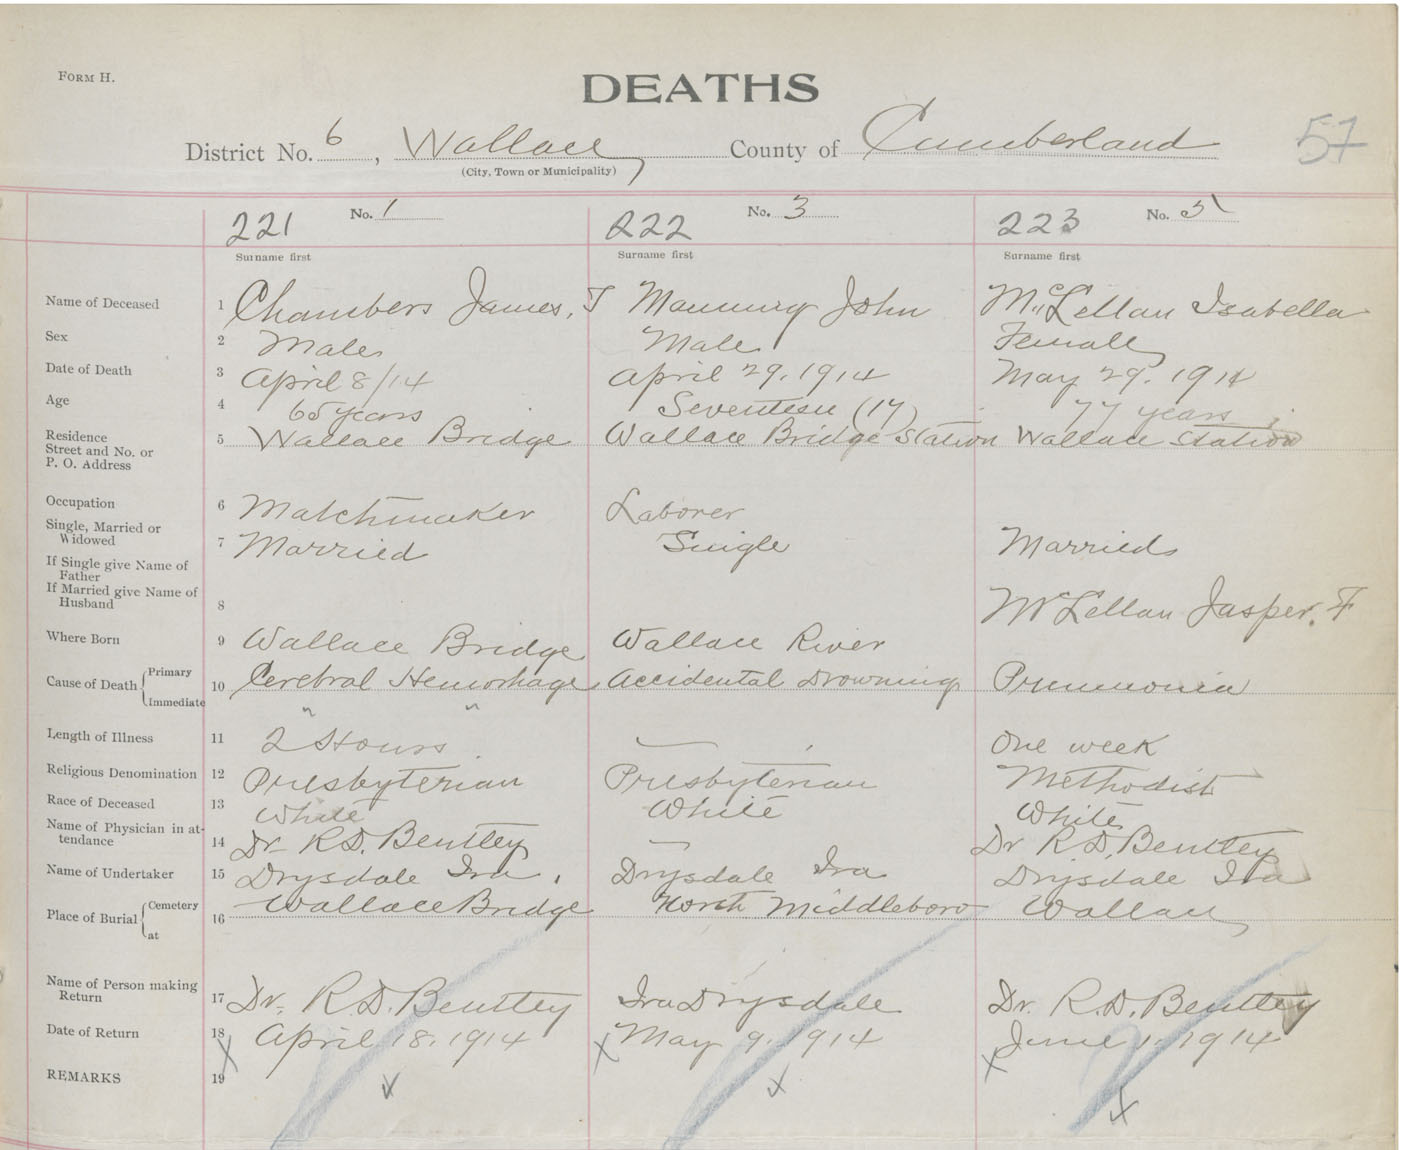 FORM H.
DEATHS
57
District No. 6, Wallace County of Cumberland
(City, Town or Municipality)
221 No. 1 222 No. 3 223 No. 5
Surname first Surname first Surname first
Name of Deceased 1 Chambers James, T John McLellan Isabella
Sex 2 Male Male Female
Date of Death 3 April 8/14 April 29, 1914 May 29, 1914
Age 4 65 years Seventeen (17) 77 years
Residence
Street and No. or
P. O. Address 5 Wallace Bridge Wallace Bridge Station Wallace Station
Occupation 6 Matchmaker Laborer
Single, Married or
Widowed 7 Married Single Married
If Single give Name of
Father
If Married give Name of
Husband 8 McLellan Jasper, F
Where Born 9 Wallace Bridge Wallace River
Cause of Death { Primary Immediate 10 Cerebral Hemorhage Accidental Drowning Pneumonia
" "
Length of Illness 11 2 Hours — One week
Religious Denomination 12 Presbyterian Presbyterian Methodist
Race of Deceased 13 White White White
Name of Physician in at-
tendance 14 Dr R.D. Bentley — Dr R.D. Bentley
Name of Undertaker 15 Drysdale Ira. Drysdale Ira Drysdale Ira
Place of Burial { Cemetery at 16 Wallace Bridge North Middleboro Wallace
Name of Person making
Return 17 Dr. R.D. Bentley Ira Drysdale Dr. R.D. Bentley
Date of Return 18 April 18, 1914 May 9, 1914 June 1, 1914
REMARKS 19